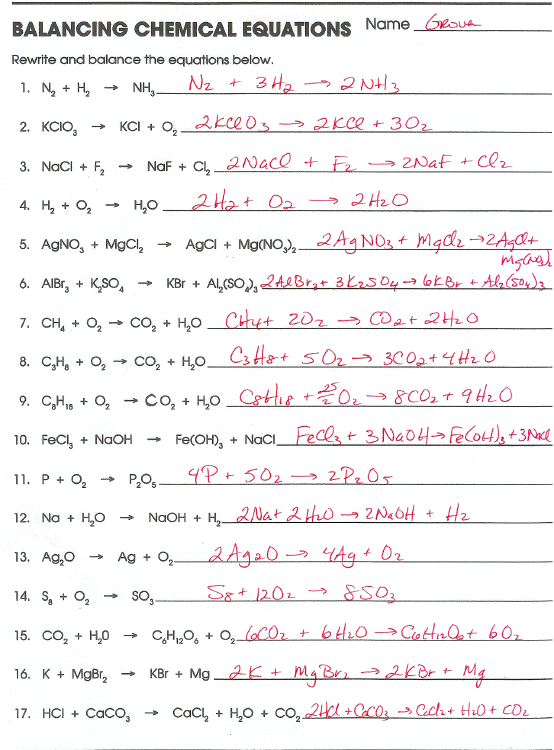 BALANCING CHEMICAL EQUATIONS Name Grover
Rewrite and balance the equations below.
1. N₂ + H₂ → NH₃ N₂ + 3H₂ → 2NH₃
2. KClO₃ → KCl + O₂ 2KClO₃ → 2KCl + 3O₂
3. NaCl + F₂ → NaF + Cl₂ 2NaCl + F₂ → 2NaF + Cl₂
4. H₂ + O₂ → H₂O 2H₂ + O₂ → 2H₂O
5. AgNO₃ + MgCl₂ → AgCl + Mg(NO₃)₂ 2AgNO₃ + MgCl₂ → 2AgCl +
Mg(NO₃)₂
6. AlBr₃ + K₂SO₄ → KBr + Al₂(SO₄)₃ 2AlBr₃ + 3K₂SO₄ → 6KBr + Al₂(SO₄)₃
7. CH₄ + O₂ → CO₂ + H₂O CH₄ + 2O₂ → CO₂ + 2H₂O
8. C₃H₈ + O₂ → CO₂ + H₂O C₃H₈ + 5O₂ → 3CO₂ + 4H₂O
9. C₈H₁₈ + O₂ → CO₂ + H₂O C₈H₁₈ + 25/2 O₂ → 8CO₂ + 9H₂O
10. FeCl₃ + NaOH → Fe(OH)₃ + NaCl FeCl₃ + 3NaOH → Fe(OH)₃ + 3NaCl
11. P + O₂ → P₂O₅ 4P + 5O₂ → 2P₂O₅
12. Na + H₂O → NaOH + H₂ 2Na + 2H₂O → 2NaOH + H₂
13. Ag₂O → Ag + O₂ 2Ag₂O → 4Ag + O₂
14. S₈ + O₂ → SO₃ S₈ + 12O₂ → 8SO₃
15. CO₂ + H₂O → C₆H₁₂O₆ + O₂ 6CO₂ + 6H₂O → C₆H₁₂O₆ + 6O₂
16. K + MgBr₂ → KBr + Mg 2K + MgBr₂ → 2KBr + Mg
17. HCl + CaCO₃ → CaCl₂ + H₂O + CO₂ 2HCl + CaCO₃ → CaCl₂ + H₂O + CO₂